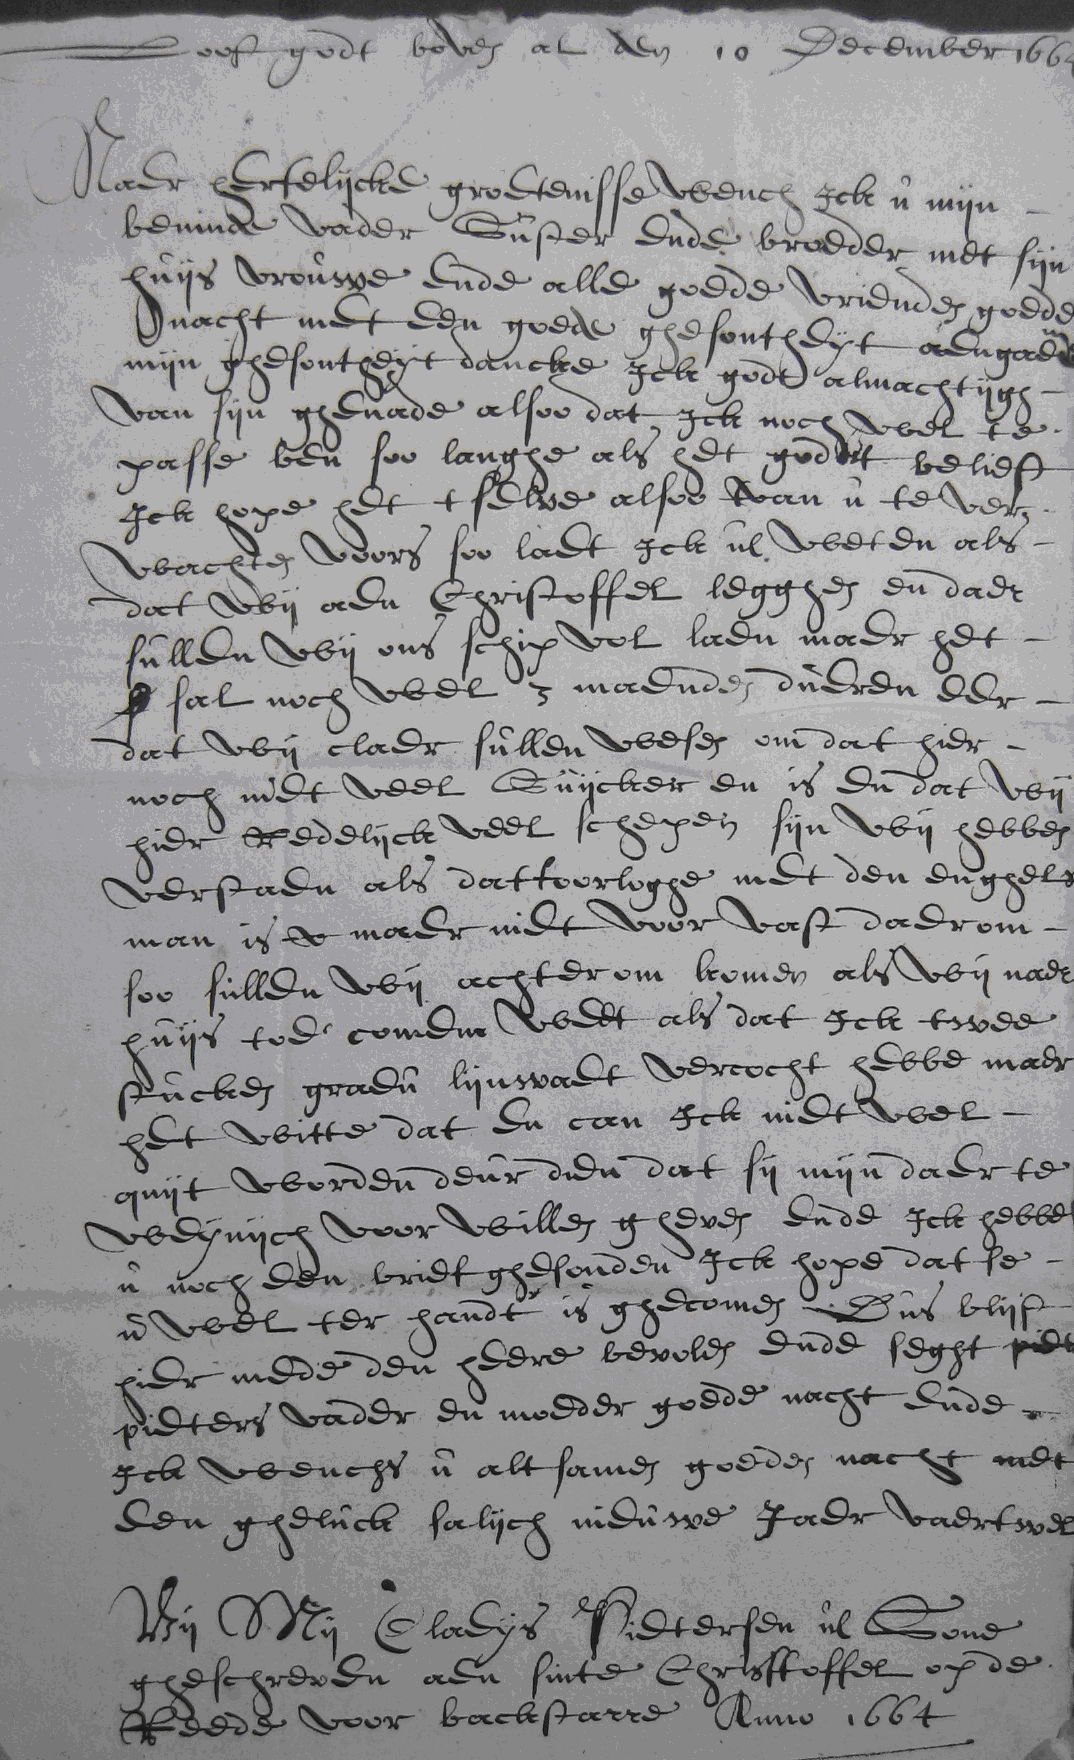 Loof godt boven al den 10 December 1664
Naer hertelijcke groetenisse wench Ick û mijn
beminde vader Sûster ende broeder met sijn
hûijs vroûwe ende alle goede vrienden goede
nacht met een goede ghesontheyt aengaende
mijn ghesontheyt dancke Ick godt almachtijgh
van sijn ghenade alsoo dat Ick noch wel te
passe ben soo langhe als het godt belieft
Ick hope het tselve alsoo van û te ver
wachten voors soo laet Ick ûl weten als
dat wij aen Christoffel legghen en daer
sûllen wij ons schip vol laen maer het
sal noch wel 3 maenden dûeren eer
dat wij claer sûllen wesen om dat hier
noch niet veel Sûijcker en is en dat wij
hier Redelijck veel schepen sijn wij hebben
verstaen als dattoorloghe met den enghels
man is maer niet voor vast daerom
soo sûllen wij achter om komen als wij naer
hûijs toe comen weet als dat Ick twee
stûcken graeû lijnwaet vercocht hebbe maer
het witte dat en can Ick niet wel
quijt worden deur dien dat sij mijn daer te
weijnijch voor willen gheven ende Ick hebbe
û noch een brief ghesonden Ick hope dat se
û wel ter handt is ghecomen Dûs blijf
hier mede den heere bevolen ende seght piet
pieters vader en moeder goede nacht ende
Ick wenchs û alt samen goeden nacht met
een ghelûck salijch nieûwe Jaer vaert wel
Bij Mij Claeijs Pietersen ûl Sone
gheschreven aen sinte Christoffel op de
Reede voor backstarre Anno 1664